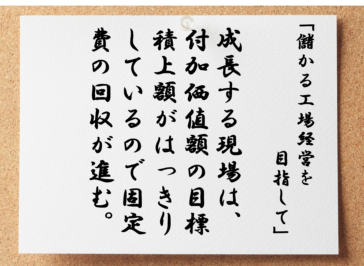 「儲かる工場経営を
目指して」
成長する現場は、
付加価値額の目標
積上額がはっきり
しているので固定
費の回収が進む。